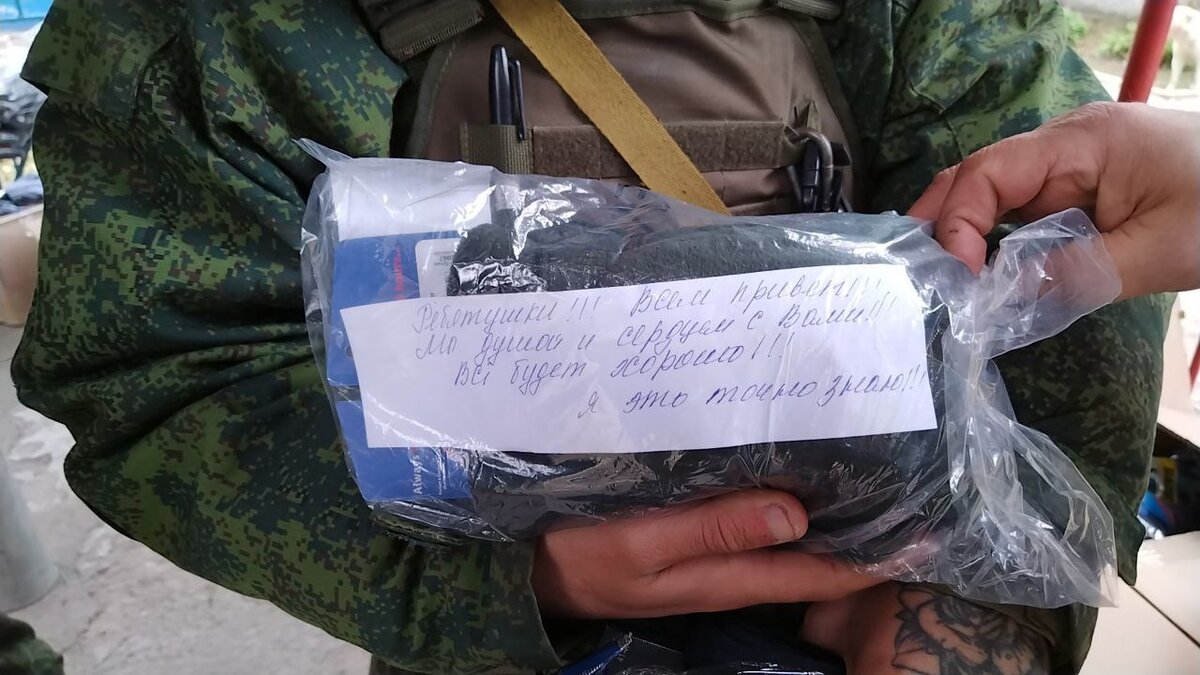 Ребятушки!!! Всем привет!!!
Мы душой и сердцем с Вами!!!
Всё будет хорошо!!!
я это точно знаю!!!
Always